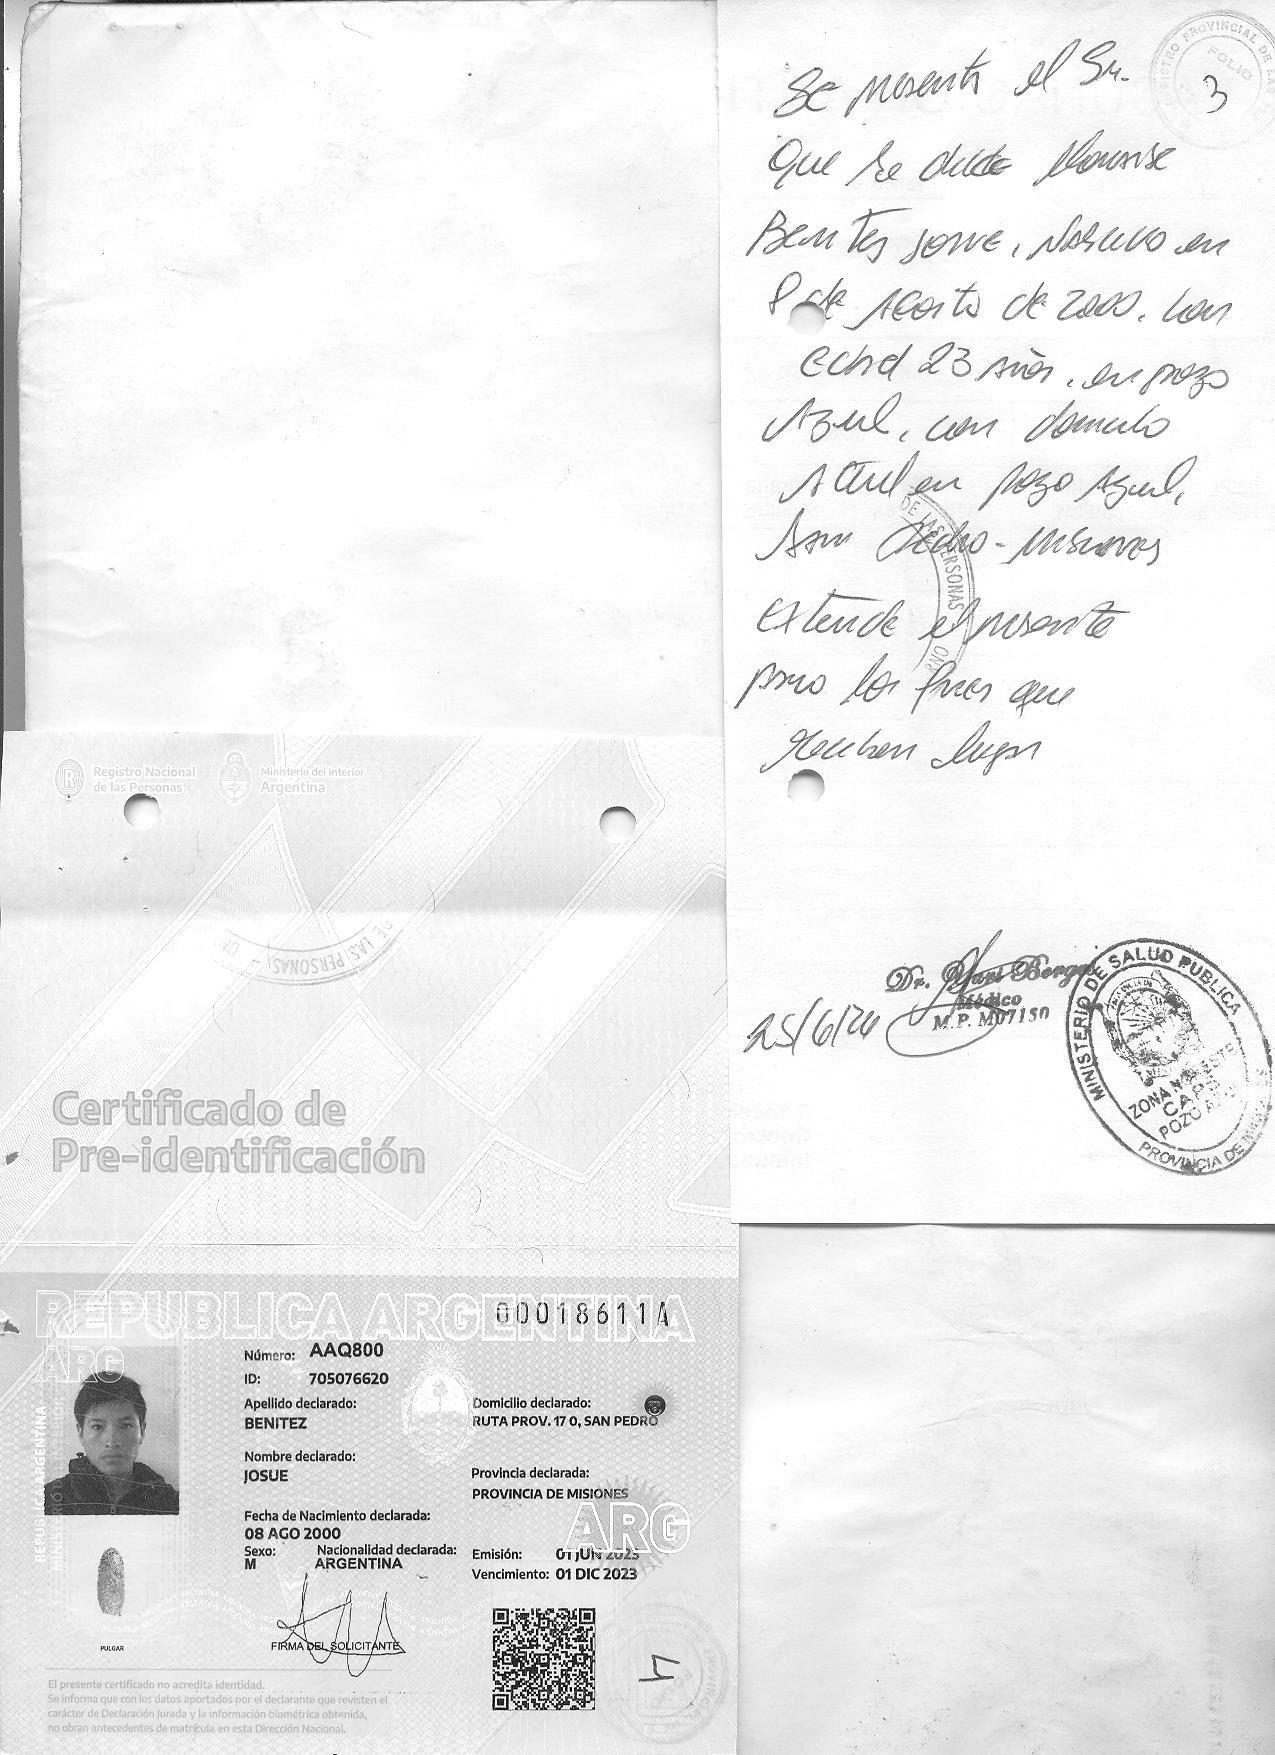 Se presenta el Sr.
Que se dice llamarse
Benites Josue, Nasido en
8 de Agosto de 2000, con
edad 23 Años, en pozo
Azul, con domicilio
Actual en pozo Azul,
San Pedro - Misiones
extiende el presente
para los fines que
huban lugar
25/6/24
Dr. Yari Borges
Médico
M.P. M07150
MINISTERIO DE SALUD PUBLICA
CAPS
POZO AZUL
PROVINCIA DE
REGISTRO PROVINCIAL DE LAS
FOLIO
3
DE LAS PERSONAS
Registro Nacional
de las Personas
Ministerio del Interior
Argentina
DE LAS PERSONAS
Certificado de
Pre-identificación
REPUBLICA ARGENTINA
00018611A
ARG
Número: AAQ800
ID: 705076620
Apellido declarado:
BENITEZ
Nombre declarado:
JOSUE
Fecha de Nacimiento declarada:
08 AGO 2000
Sexo: Nacionalidad declarada:
M ARGENTINA
Domicilio declarado:
RUTA PROV. 17 0, SAN PEDRO
Provincia declarada:
PROVINCIA DE MISIONES
ARG
Emisión: 01 JUN 2023
Vencimiento: 01 DIC 2023
REPUBLICA ARGENTINA
PULGAR
FIRMA DEL SOLICITANTE
4
El presente certificado no acredita identidad.
Se informa que con los datos aportados por el declarante que revisten el
carácter de Declaración Jurada y la información biométrica obtenida,
no obran antecedentes de matrícula en esta Dirección Nacional.